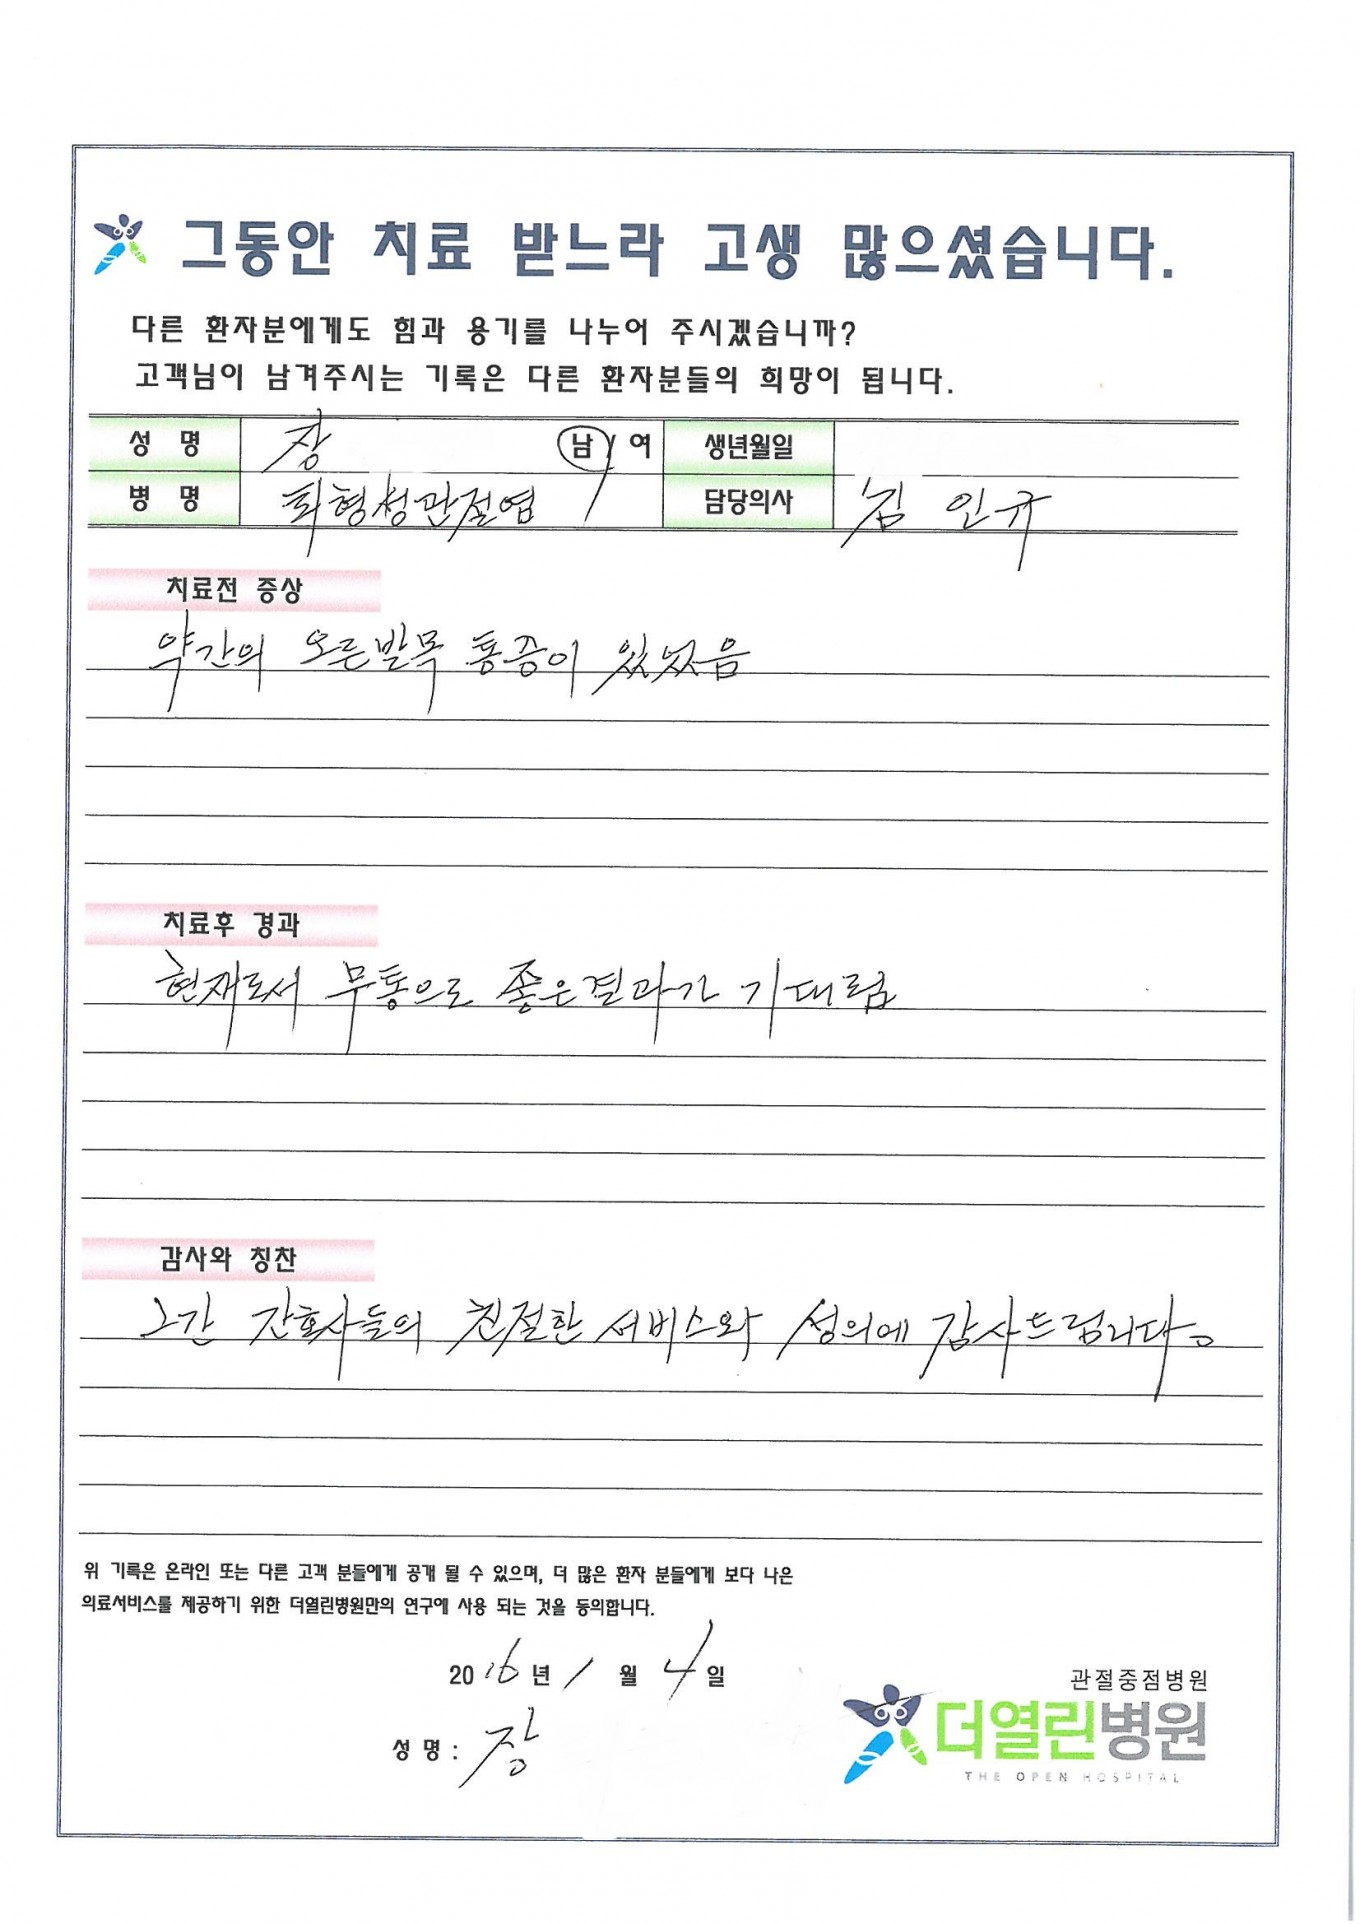 그동안 치료 받느라 고생 많으셨습니다.
다른 환자분에게도 힘과 용기를 나누어 주시겠습니까?
고객님이 남겨주시는 기록은 다른 환자분들의 희망이 됩니다.
성 명 장 남/여 생년월일
병 명 퇴형성관절염 담당의사 김 인규
치료전 증상
약간의 오른발목 통증이 있었음
치료후 경과
현재로서 무통으로 좋은결과가 기대됨
감사와 칭찬
그간 간호사들의 친절한 서비스와 성의에 감사드립니다.
위 기록은 온라인 또는 다른 고객 분들에게 공개 될 수 있으며, 더 많은 환자 분들에게 보다 나은
의료서비스를 제공하기 위한 더열린병원만의 연구에 사용 되는 것을 동의합니다.
2016년 1월 4일
성 명 : 장
관절중점병원
더열린병원
THE OPEN HOSPITAL